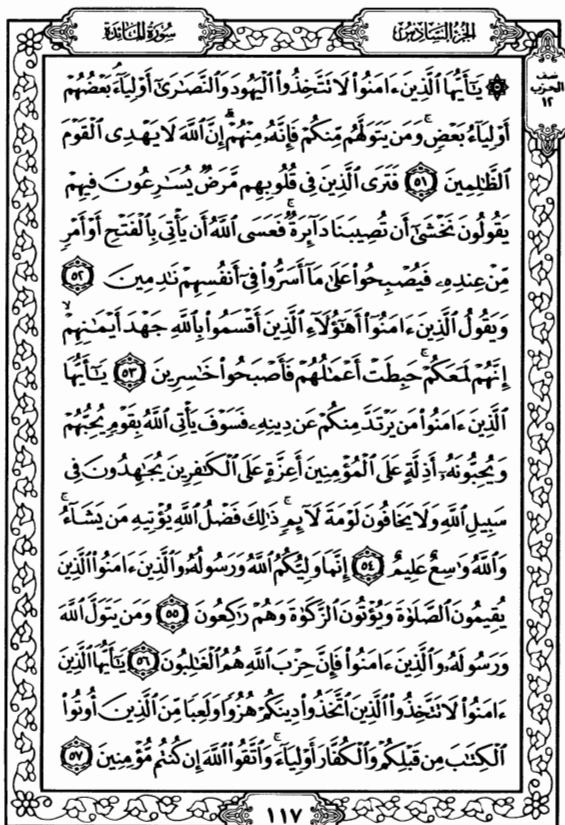 سُورَةُ المَائدة
الجزءُ السَّادِسُ
نصف
الحزب
١٢
۞ يَٰٓأَيُّهَا ٱلَّذِينَ ءَامَنُوا۟ لَا تَتَّخِذُوا۟ ٱلْيَهُودَ وَٱلنَّصَٰرَىٰٓ أَوْلِيَآءَ ۘ بَعْضُهُمْ
أَوْلِيَآءُ بَعْضٍ ۚ وَمَن يَتَوَلَّهُم مِّنكُمْ فَإِنَّهُۥ مِنْهُمْ ۗ إِنَّ ٱللَّهَ لَا يَهْدِى ٱلْقَوْمَ
ٱلظَّٰلِمِينَ ٥١ فَتَرَى ٱلَّذِينَ فِى قُلُوبِهِم مَّرَضٌ يُسَٰرِعُونَ فِيهِمْ
يَقُولُونَ نَخْشَىٰٓ أَن تُصِيبَنَا دَآئِرَةٌ ۚ فَعَسَى ٱللَّهُ أَن يَأْتِىَ بِٱلْفَتْحِ أَوْ أَمْرٍ
مِّنْ عِندِهِۦ فَيُصْبِحُوا۟ عَلَىٰ مَآ أَسَرُّوا۟ فِىٓ أَنفُسِهِمْ نَٰدِمِينَ ٥٢
وَيَقُولُ ٱلَّذِينَ ءَامَنُوٓا۟ أَهَٰٓؤُلَآءِ ٱلَّذِينَ أَقْسَمُوا۟ بِٱللَّهِ جَهْدَ أَيْمَٰنِهِمْ ۙ
إِنَّهُمْ لَمَعَكُمْ ۚ حَبِطَتْ أَعْمَٰلُهُمْ فَأَصْبَحُوا۟ خَٰسِرِينَ ٥٣ يَٰٓأَيُّهَا
ٱلَّذِينَ ءَامَنُوا۟ مَن يَرْتَدَّ مِنكُمْ عَن دِينِهِۦ فَسَوْفَ يَأْتِى ٱللَّهُ بِقَوْمٍ يُحِبُّهُمْ
وَيُحِبُّونَهُۥٓ أَذِلَّةٍ عَلَى ٱلْمُؤْمِنِينَ أَعِزَّةٍ عَلَى ٱلْكَٰفِرِينَ يُجَٰهِدُونَ فِى
سَبِيلِ ٱللَّهِ وَلَا يَخَافُونَ لَوْمَةَ لَآئِمٍ ۚ ذَٰلِكَ فَضْلُ ٱللَّهِ يُؤْتِيهِ مَن يَشَآءُ ۚ
وَٱللَّهُ وَٰسِعٌ عَلِيمٌ ٥٤ إِنَّمَا وَلِيُّكُمُ ٱللَّهُ وَرَسُولُهُۥ وَٱلَّذِينَ ءَامَنُوا۟ ٱلَّذِينَ
يُقِيمُونَ ٱلصَّلَوٰةَ وَيُؤْتُونَ ٱلزَّكَوٰةَ وَهُمْ رَٰكِعُونَ ٥٥ وَمَن يَتَوَلَّ ٱللَّهَ
وَرَسُولَهُۥ وَٱلَّذِينَ ءَامَنُوا۟ فَإِنَّ حِزْبَ ٱللَّهِ هُمُ ٱلْغَٰلِبُونَ ٥٦ يَٰٓأَيُّهَا ٱلَّذِينَ
ءَامَنُوا۟ لَا تَتَّخِذُوا۟ ٱلَّذِينَ ٱتَّخَذُوا۟ دِينَكُمْ هُزُوًا وَلَعِبًا مِّنَ ٱلَّذِينَ أُوتُوا۟
ٱلْكِتَٰبَ مِن قَبْلِكُمْ وَٱلْكُفَّارَ أَوْلِيَآءَ ۚ وَٱتَّقُوا۟ ٱللَّهَ إِن كُنتُم مُّؤْمِنِينَ ٥٧
١١٧